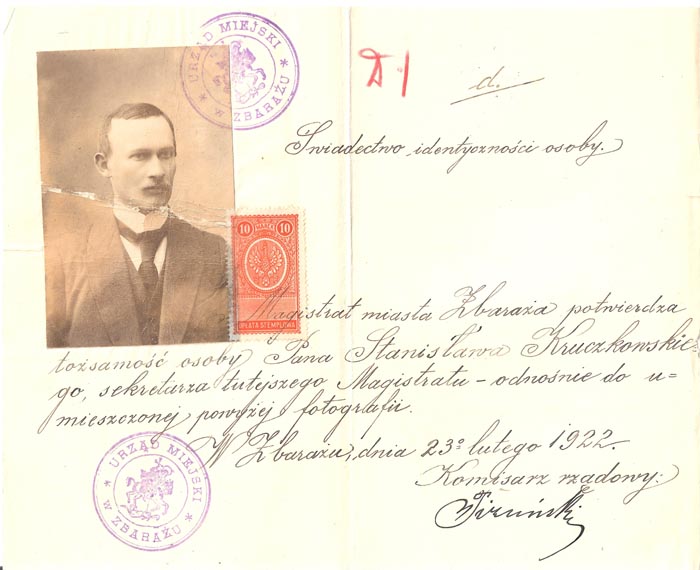 URZĄD MIEJSKI
* W ZBARAŻU *
d.
Świadectwo identyczności osoby.
10 MAREK 10
OPŁATA STEMPLOWA
Magistrat miasta Zbaraża potwierdza
tożsamość osoby Pana Stanisława Kruczkowskie-
go, sekretarza tutejszego Magistratu – odnośnie do u=
mieszczonej powyżej fotografii.
W Zbarażu, dnia 23º lutego 1922.
Komisarz rządowy:
* URZĄD MIEJSKI *
W ZBARAŻU